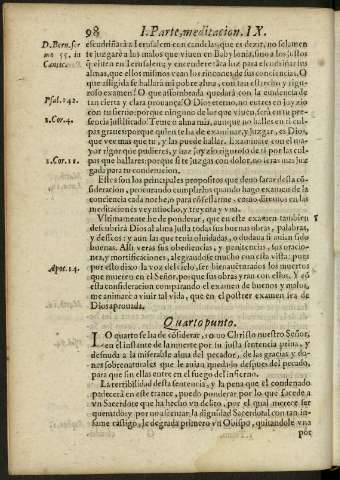 98 I. Parte, meditacion. IX.
D. Bern. ser
mo 55. in
Cantic.
escudriñarà a Ierusalem con candelas, que es dezir, no solamente
te juzgarè a los malos que viuen en Babylonia, sino a los justos
q̃ viuen en Ierusalem, y encenderè tãta luz para escudriñar sus
almas, que ellos mismos vean los rincones de sus conciencias. O
que afligida se hallarà mi pobre alma, con tan estrecho y rigu-
roso examen! O que assombrada quedarà con la euidencia de
Psal. 142.
tan cierta y clara prouança! O Dios eterno, no entres en juyzio
con tu sieruo: porque ninguno de los que viuen, serà en tu pre-
1. Cor. 4.
sencia justificado: Teme o alma mia, aunque no halles en ti cul-
pas graues: porque quien te ha de examinar, y juzgar, es Dios,
que vee mas que tu, y las puede hallar. Examinate con el ma-
yor rigor que pudieres, y juzgate a ti
1. Cor. 11.
pas que hallares: porque si te juzgas con dolor, no seras mas juz
gada para tu condenacion.
Este son los principales propositos que deuo sacar desta cõ-
sideracion, procurando cumplirlos quando hago examen de la
conciencia cada noche, o para confessarme, como diremos en las
meditaciones veyntiocho, y treynta, y vna.
Vltimamente he de ponderar, que en este examen tambien
descubrirà Dios al alma justa todas sus buenas obras, palabras,
y desseos: y aun las que tenia oluidadas, o dudaua si auian sido
buenas. Alli vera sus obediencias, y penitencias, sus oracio-
nes, y mortificaciones, alegrandose mucho con esta vista: pues
Apoc. 14.
por esso dixo la voz del cielo, ser bienauenturados los muertos
que mueren en el Señor, porque sus obras yran con ellos. Y cõ
esta consideracion comparando el examen de buenos y malos,
me animarè a viuir tal vida, que en el postrer examen sea de
Dios aprouada.
Quarto punto.
LO quarto se ha de cõsiderar, como Christo nuestro Señor,
en el instante de la muerte por su justa sentencia priua, y
desnuda a la miserable alma del pecador, de las gracias y do-
nes sobrenaturales que le auian quedado despues del pecado,
para que sin ellas entre en el fuego del infierno.
La terribilidad desta sentencia, y la pena que el condenado
padecerà en este trance, puedo ponderar por lo que sucede a
vn Sacerdote que ha hecho vn delito, por el qual merece ser
quemado: y por no afrentar la dignidad Sacerdotal con tan in-
fame castigo, le degrada primero vn Obispo, quitandole vna
por